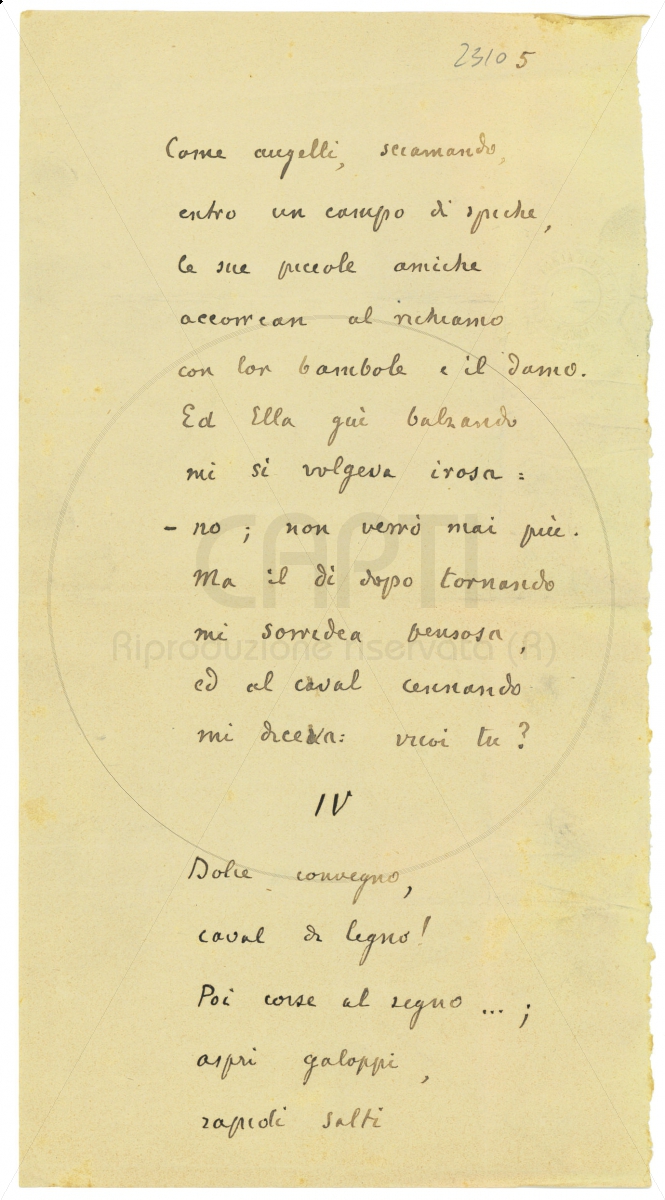 23105
Come augelli, sciamando,
entro un campo di spiche,
le sue piccole amiche
accorrean al richiamo
con lor bambole e il damo.
Ed Ella giù balzando
mi si volgeva irosa:
- no; non verrò mai più.
Ma il dì dopo tornando
mi sorridea pensosa,
ed al caval cennando
mi diceva: vuoi tu?
IV
Dolce convegno,
caval di legno!
Poi corse al segno...;
aspri galoppi,
rapidi salti
CARTI
Riproduzione riservata (R)